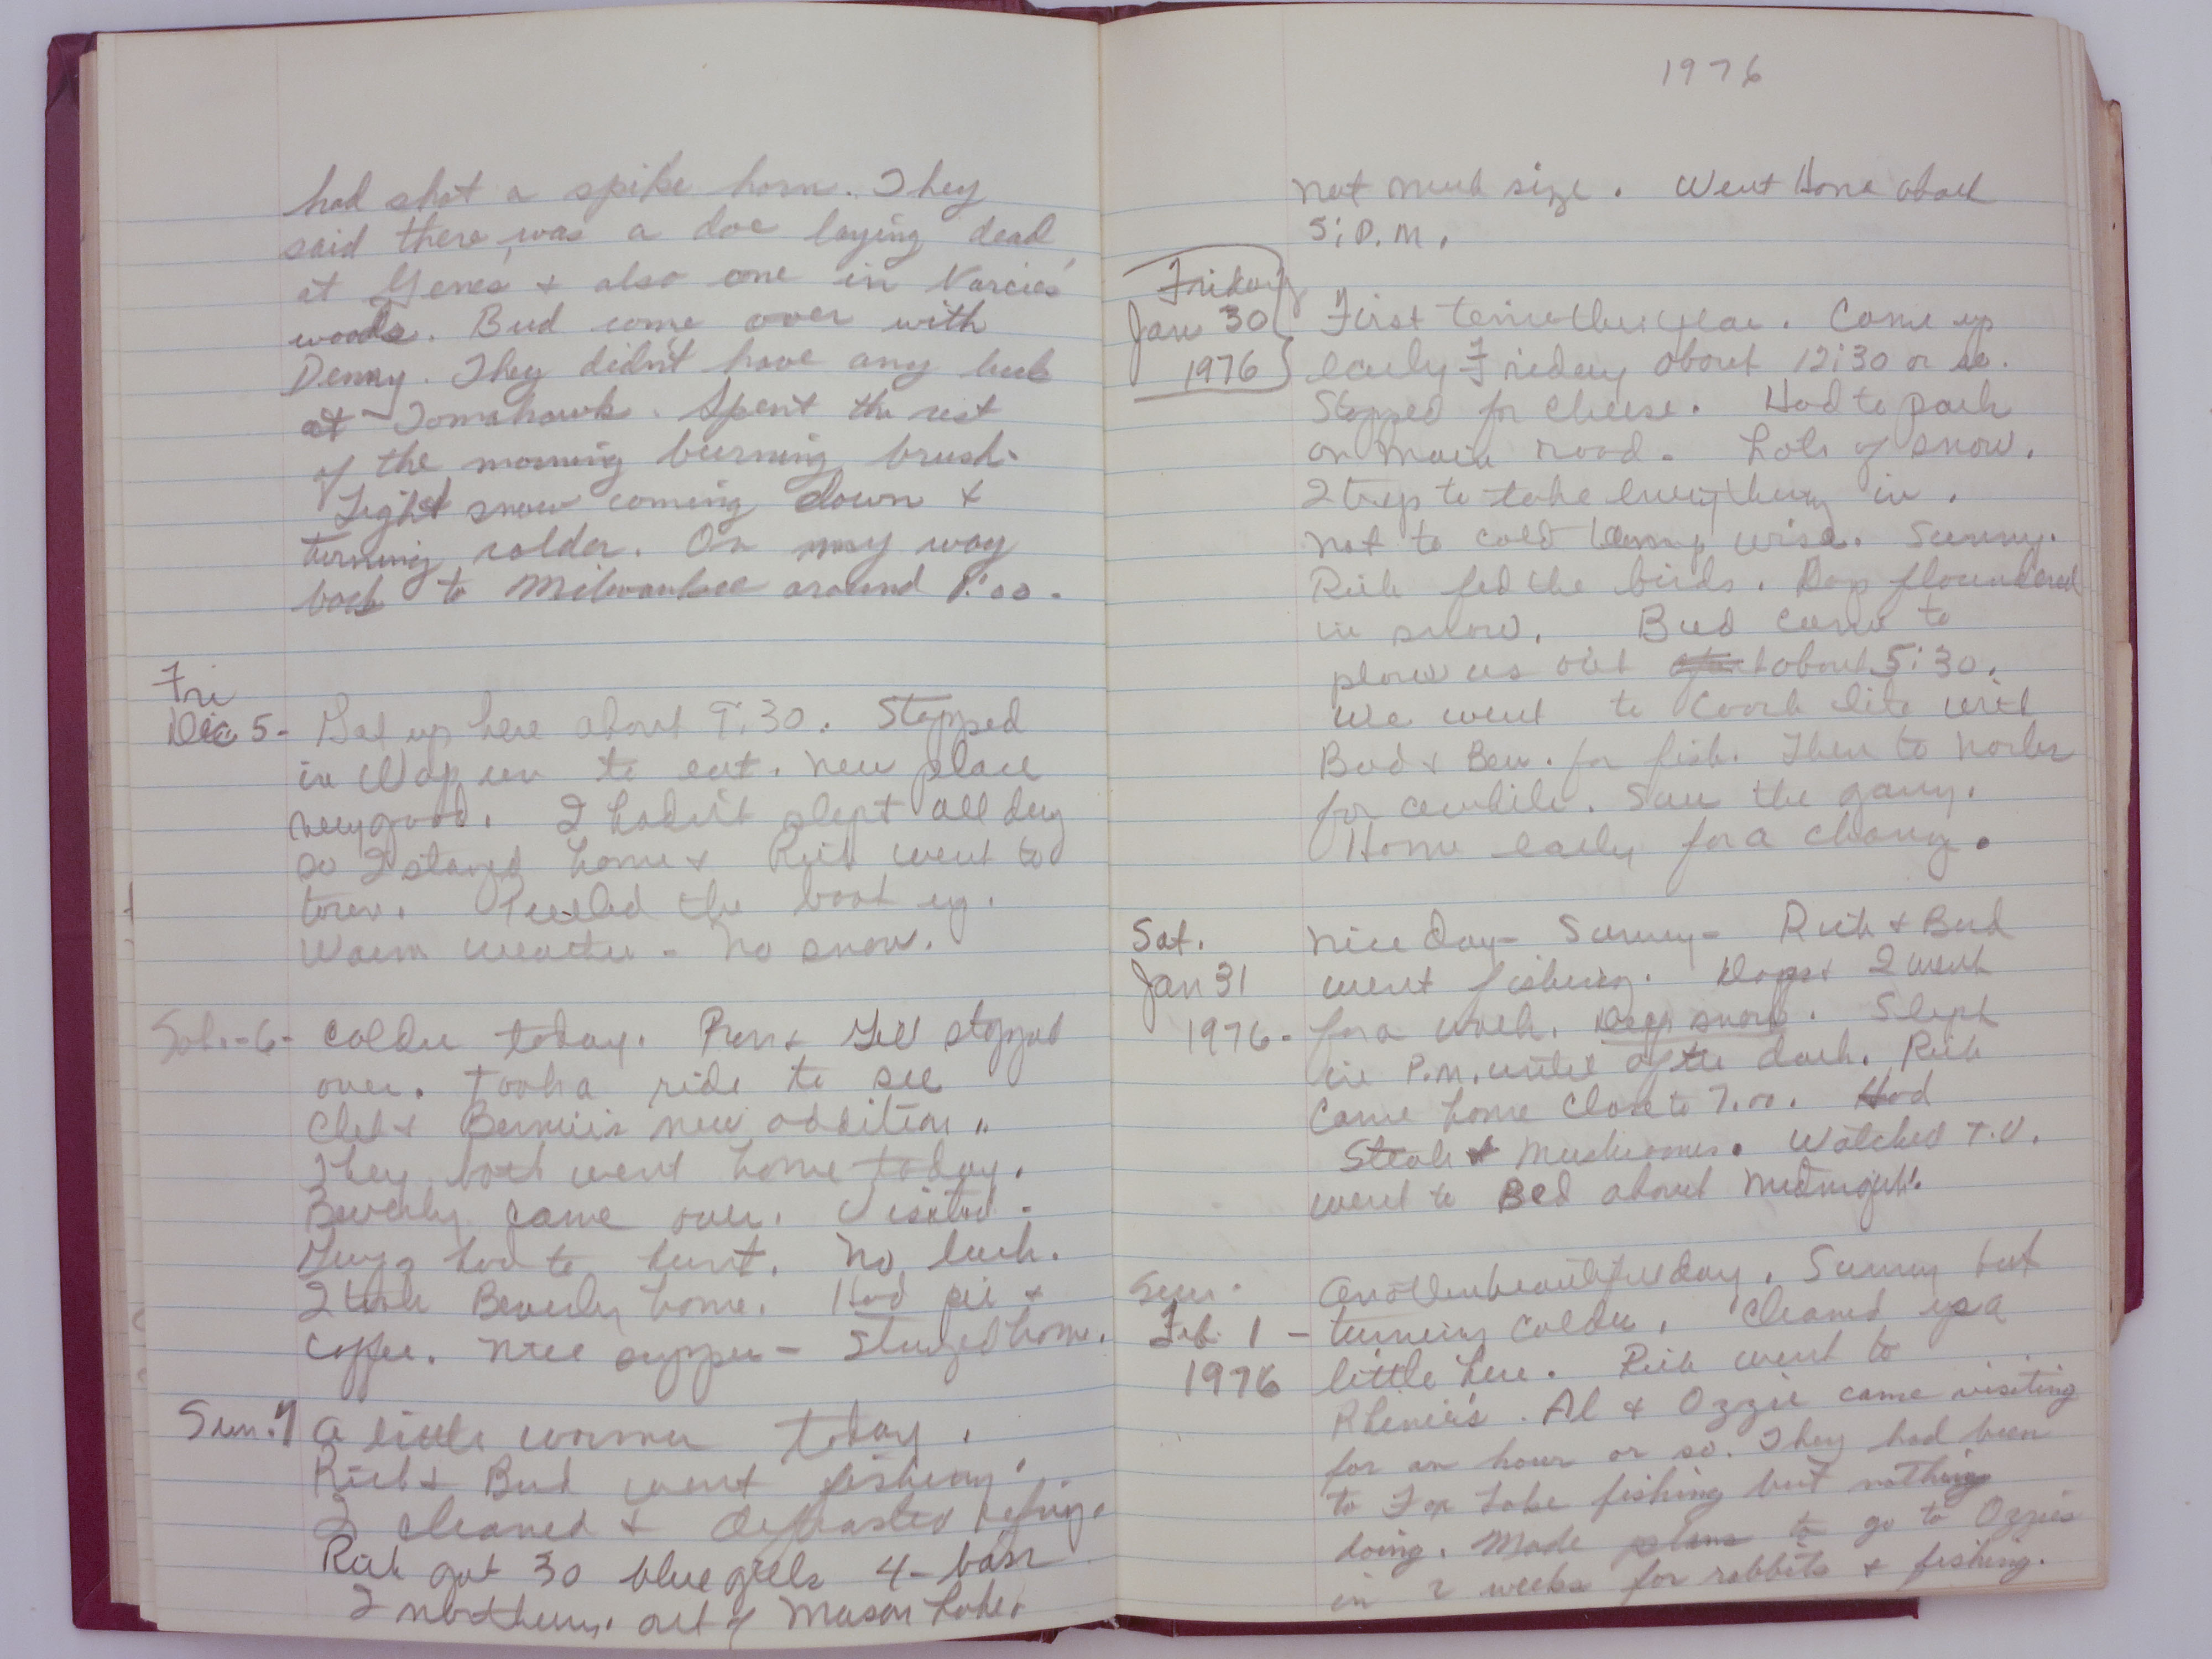 had shot a spike horn. They
said there was a doe laying dead
at Gene's + also one in Narcie's
woods. Bud come over with
Denny. They didn't have any luck
at Tomahawk. Spent the rest
of the morning burning brush.
Light snow coming down +
turning colder. On my way
back to Milwaukee around 1:00.
Fri
Dec 5- Got up here about 9:30. Stopped
in Waupun to eat. New place
very good. I hadn't slept all day
so I stayed home + Rich went to
town. the boat up.
Warm weather - No snow.
Sat.-6- Colder today. + stopped
over. Took a ride to see
Chet + Bernie's new addition.
They both went home today.
Beverly came over. Visited.
Guys had to hunt. No luck.
I took Beverly home. Had pie +
Coffee. Nice supper - Stayed home.
Sun. 7 A little warmer today.
Rich + Bud went fishing.
I cleaned + defrosted refrig.
Rich got 30 blue gills 4- bass
2 northerns. out of Mason Lake.
1976
not much size. Went Home about
5: P.M.
Friday
Jan 30 First time this year. Came up
1976 early Friday about 12:30 or so.
Stopped for cheese. Had to park
on Main road - Lots of snow.
2 trips to take everything in.
Not to cold temp wise. Sunny.
Rich fed the birds. Dog floundered
in snow. Bud came to
plow us out about 5:30.
We went to Coach Lite with
Bud + Bev. for fish. Then to Norbs
for awhile. Saw the gang.
Home early for a change.
Sat. Nice day - Sunny - Rich + Bud
Jan 31 went fishing. Dog + I went
1976- for a walk. Deep snow. Slept
in P.M. until after dark. Rich
Came home close to 7:00. Had
Steak + Mushrooms. Watched T.V.
went to Bed about Midnight.
Sun. Another beautiful day. Sunny but
Feb. 1 - turning colder. Cleaned up a
1976 little here. Rich went to
Rhenie's. Al + Ozzie came visiting
for an hour or so. They had been
to Fox Lake fishing but nothing
doing. Made plans to go to Ozzies
in 2 weeks for rabbits + fishing.